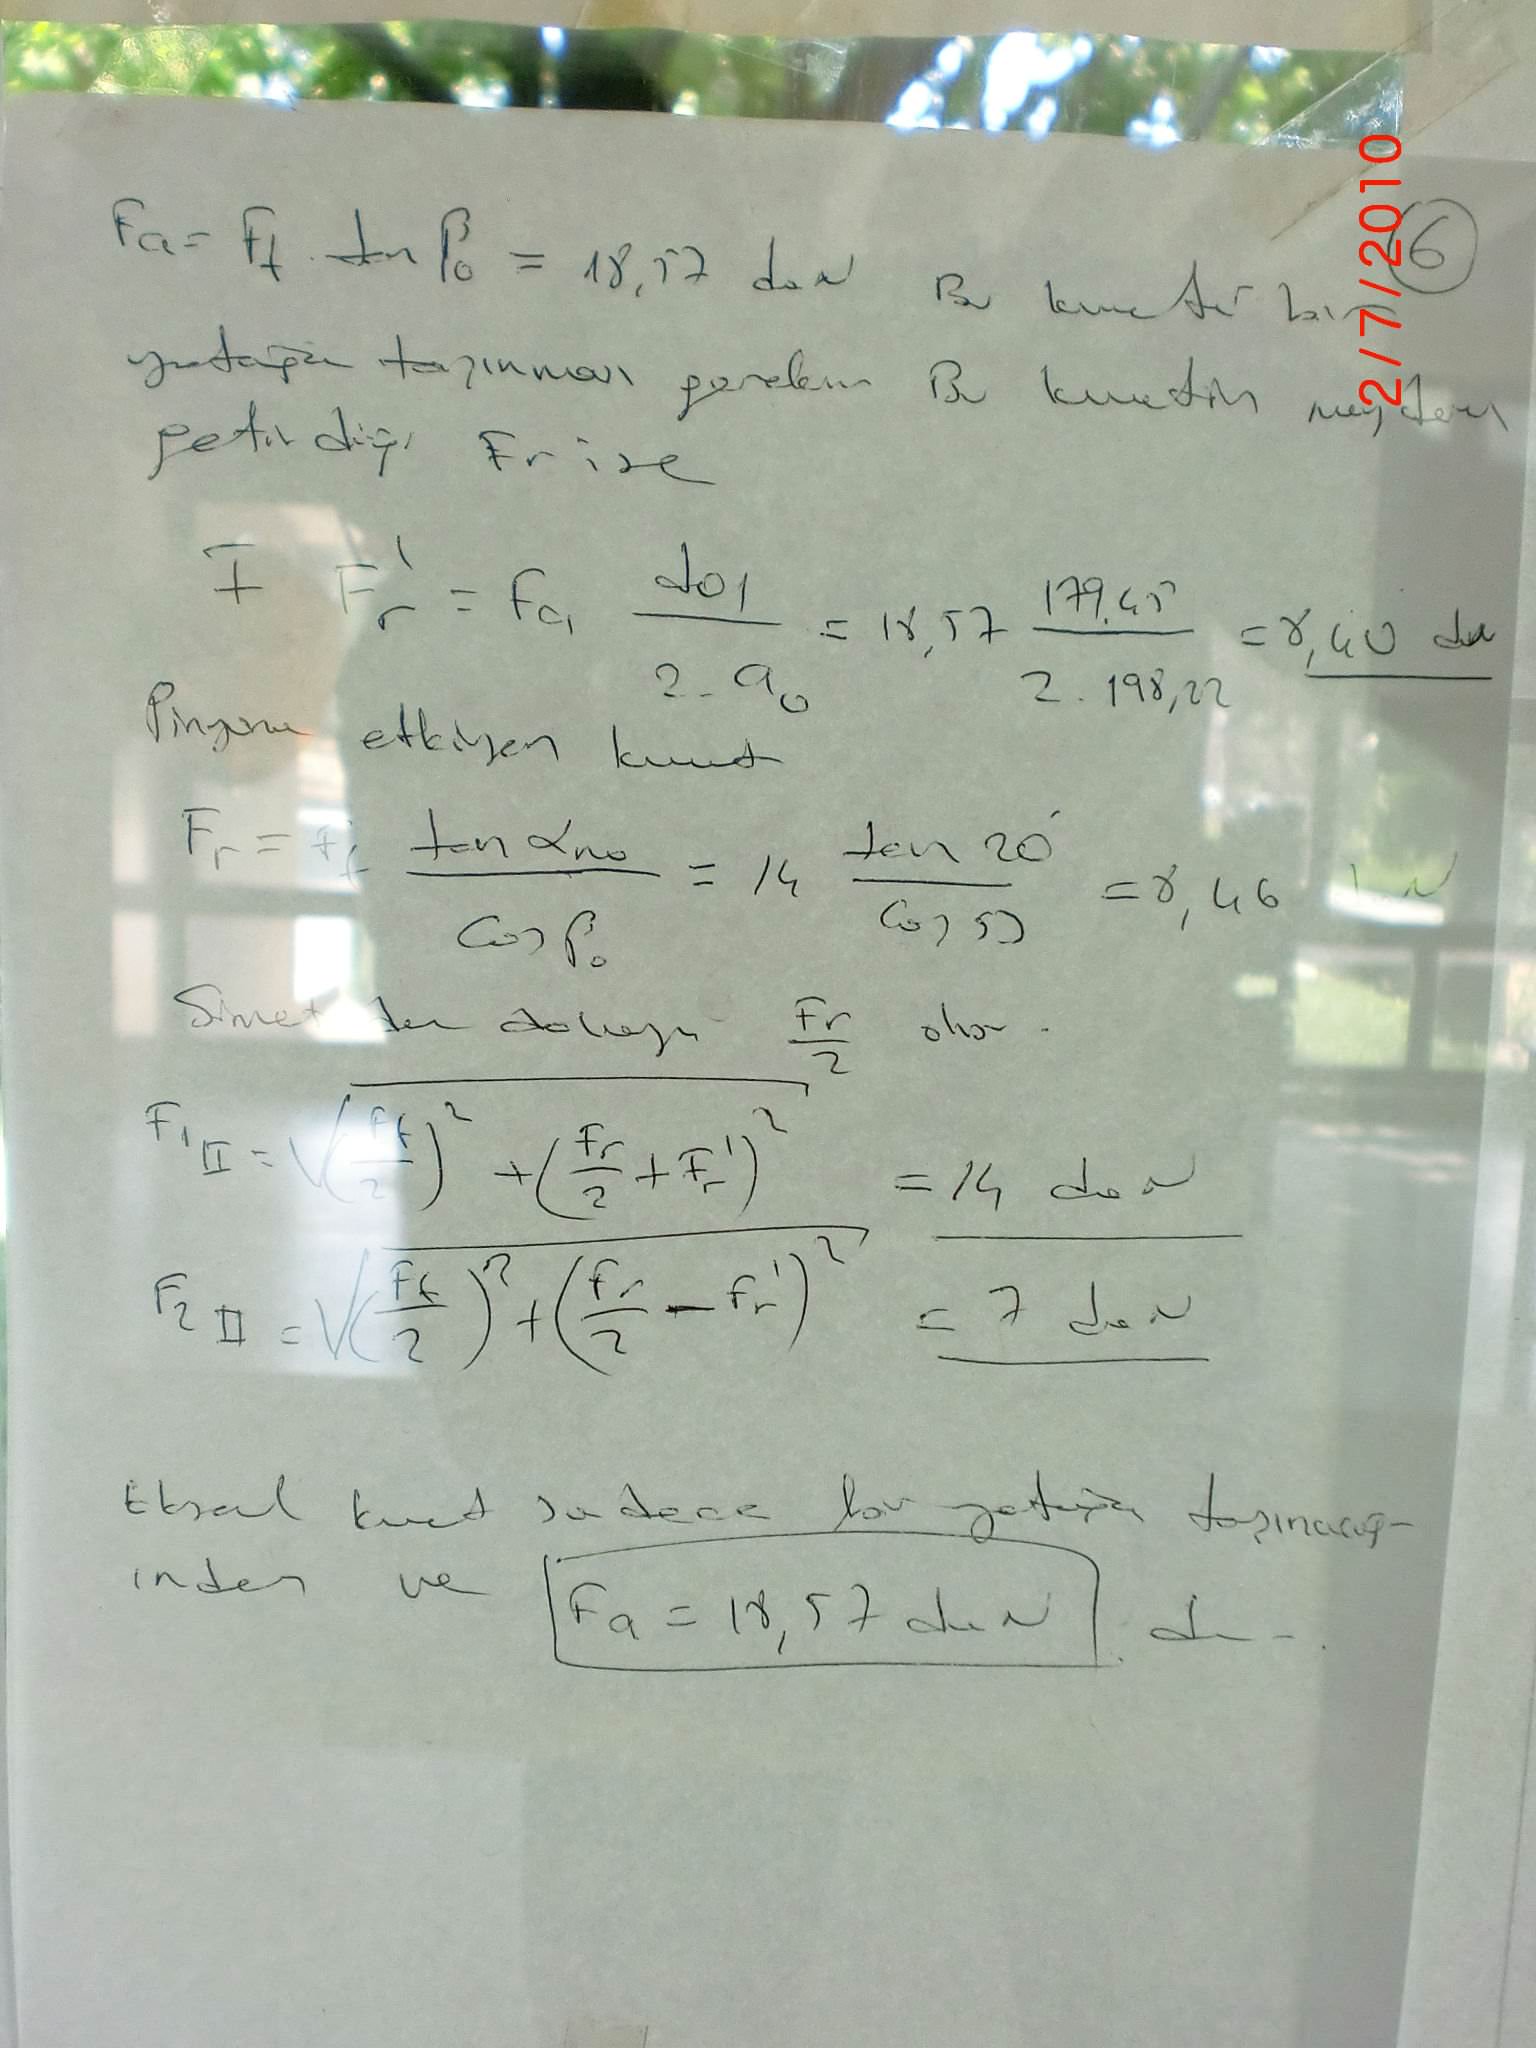 2/7/2010
6
Fa = Ft . tan β₀ = 18,57 daN Bu kuvveti bir
yatağın taşınması gerekir Bu kuvvetin meydana
getirdiği Fr ise
I Fr' = Fa d01 / 2.a₀ = 18,57 179,45 / 2.198,22 = 8,40 daN
Pinyona etkiyen kuvvet
Fr = Ft tan αno / Cos β₀ = 14 tan 20° / Cos 53 = 8,46 daN
Simetriden dolayı Fr/2 olur.
F1 II = √((Ft/2)² + (Fr/2 + Fr')²) = 14 daN
F2 II = √((Ft/2)² + (Fr/2 - Fr')²) = 7 daN
Eksenel kuvvet sadece bir yatağın taşınacağ-
ından ve Fa = 18,57 daN dır.